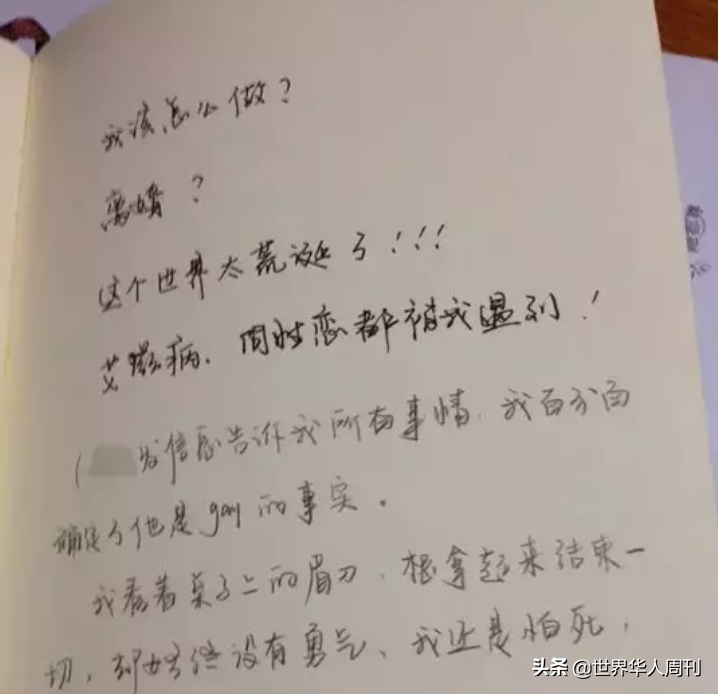 我该怎么做？
离婚？
这个世界太荒诞了！！！
艾滋病、同性恋都被我遇到！
（ 发信息告诉我所有事情，我百分百
确定了他是gay的事实。
我看着桌子上的眉刀，想拿起来结束一
切，却始终没有勇气、我还是怕死，
头条 @世界华人周刊